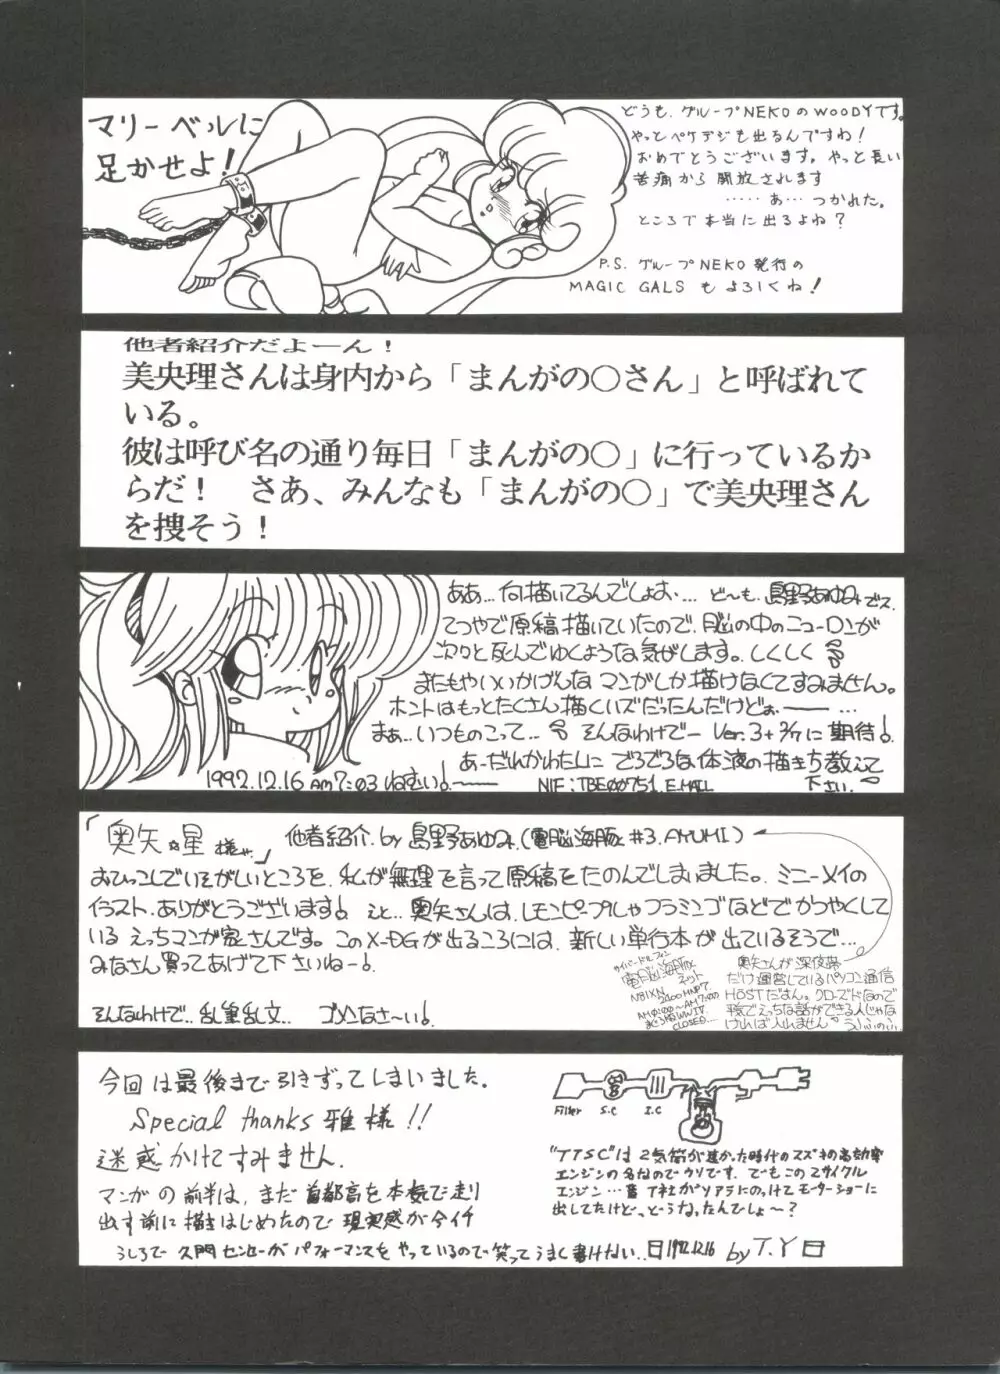 マリーベルに
足かせよ!
どうも、グループNEKOのWOODYです。
やっとペケデジも出るんですね!
おめでとうございます。やっと長い
苦痛から開放されます
…‥あ…つかれた。
ところで本当に出るよね?
P.S. グループNEKO発行の
MAGIC GALS もよろしくね!
他者紹介だよーん!
美央理さんは身内から「まんがの〇さん」と呼ばれて
いる。
彼は呼び名の通り毎日「まんがの〇」に行っているか
らだ! さあ、みんなも「まんがの〇」で美央理さん
を捜そう!
ああ…何描いてるんでしょお…. ど〜も、島野あゆみでス.
てつやで原稿描いていたので、脳の中のニューロンが
次々と死んでゆくような気がします。しくしく
またもやいいかげんな マンガしか描けなくてすみません。
ホントはもっとたくさん描くハズだったんだけどぉ――…
まぁ…いつものこって… そんなわけでー Ver.3+ に期待!
あーだれかわたしに でろでろな体液の描き方教えて
下さい.
1992.12.16 AM7:03 ねむい!――
NIF:TBE00751. E.MAIL
「奥矢☆星様」 他者紹介 by 島野あゆみ.(電脳海豚 #3. AYUMI)
おひっこしでいそがしいところを、私が無理を言って原稿をたのんでしまいました。ミニーメイの
イラスト、ありがとうございます! えと…奥矢さんは、レモンピープルやフラミンゴなどでかつやくして
いる えっちマンガ家さんです。このX-DGが出るころには、新しい単行本が出ているそうで…
みなさん買ってあげて下さいねー!
そんなわけで…乱筆乱文… ゴメンなさ〜い!
サイバードルフィン
電脳海豚
ネット
N81XN
2400 MNP7
AM0:00〜AM7:00
CLOSED...
奥矢さんが深夜帯
だけ運営しているパソコン通信
HOSTだす。クローズドなので
平気でえっちな話ができる人じゃな
ければ入れません うふふのふ
今回は最後まで引きずってしまいました.
Special thanks 雅様!!
迷惑かけてすみません.
マンガの前半は、まだ首都高を本気で走り
出す前に描きはじめたので現実感が今イチ
うしろで久門センセーがパフォーマンスをやっているので笑ってうまく書けない.. 1992.12.16 by T.Y
Filter S.C I.C
"TTSC"は2気筒が甚かった時代のスズキの高効率
エンジンの名なのでウソです. でもこの2サイクル
エンジン…昔T社がソアラにのっけてモーターショーに
出してたけど、どうなったんでしょ〜?